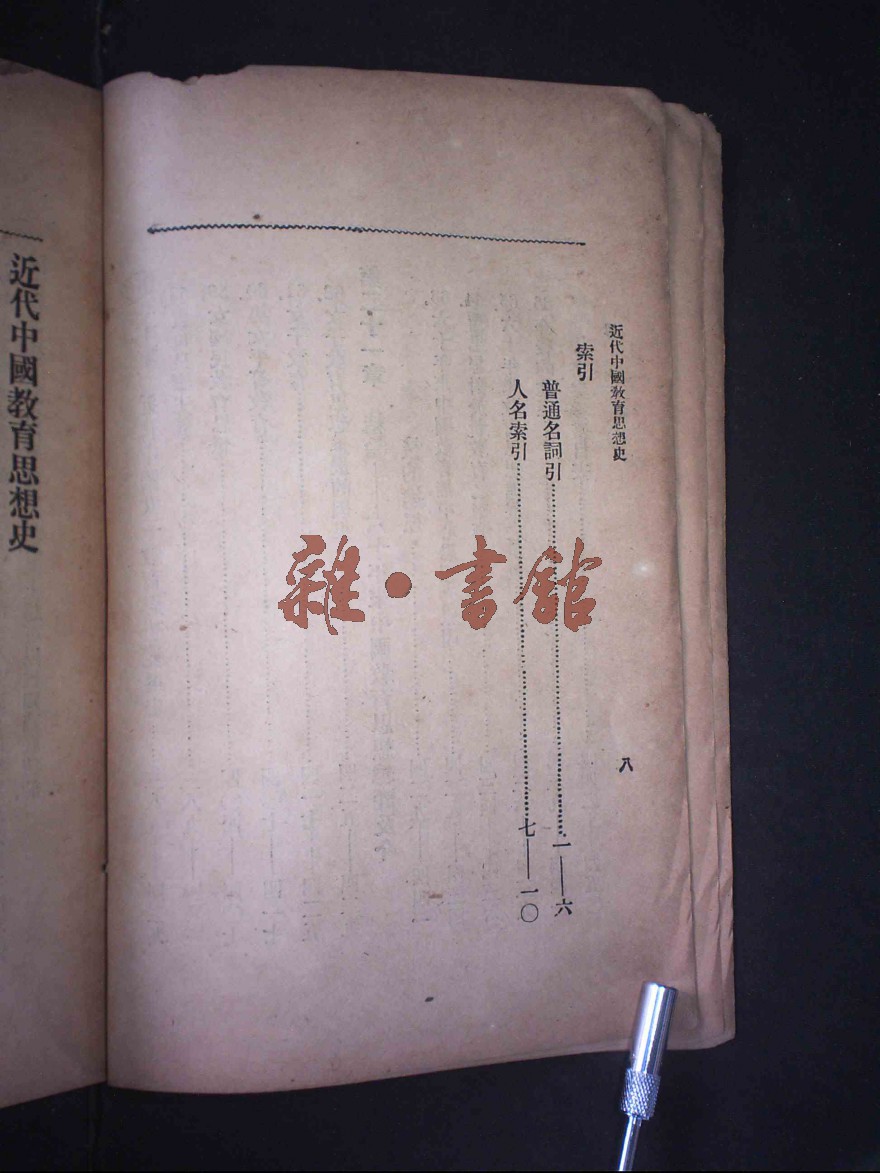 近代中國教育思想史
八
索引
普通名詞引……一——六
人名索引……七——一〇
雜·書館
近代中國教育思想史